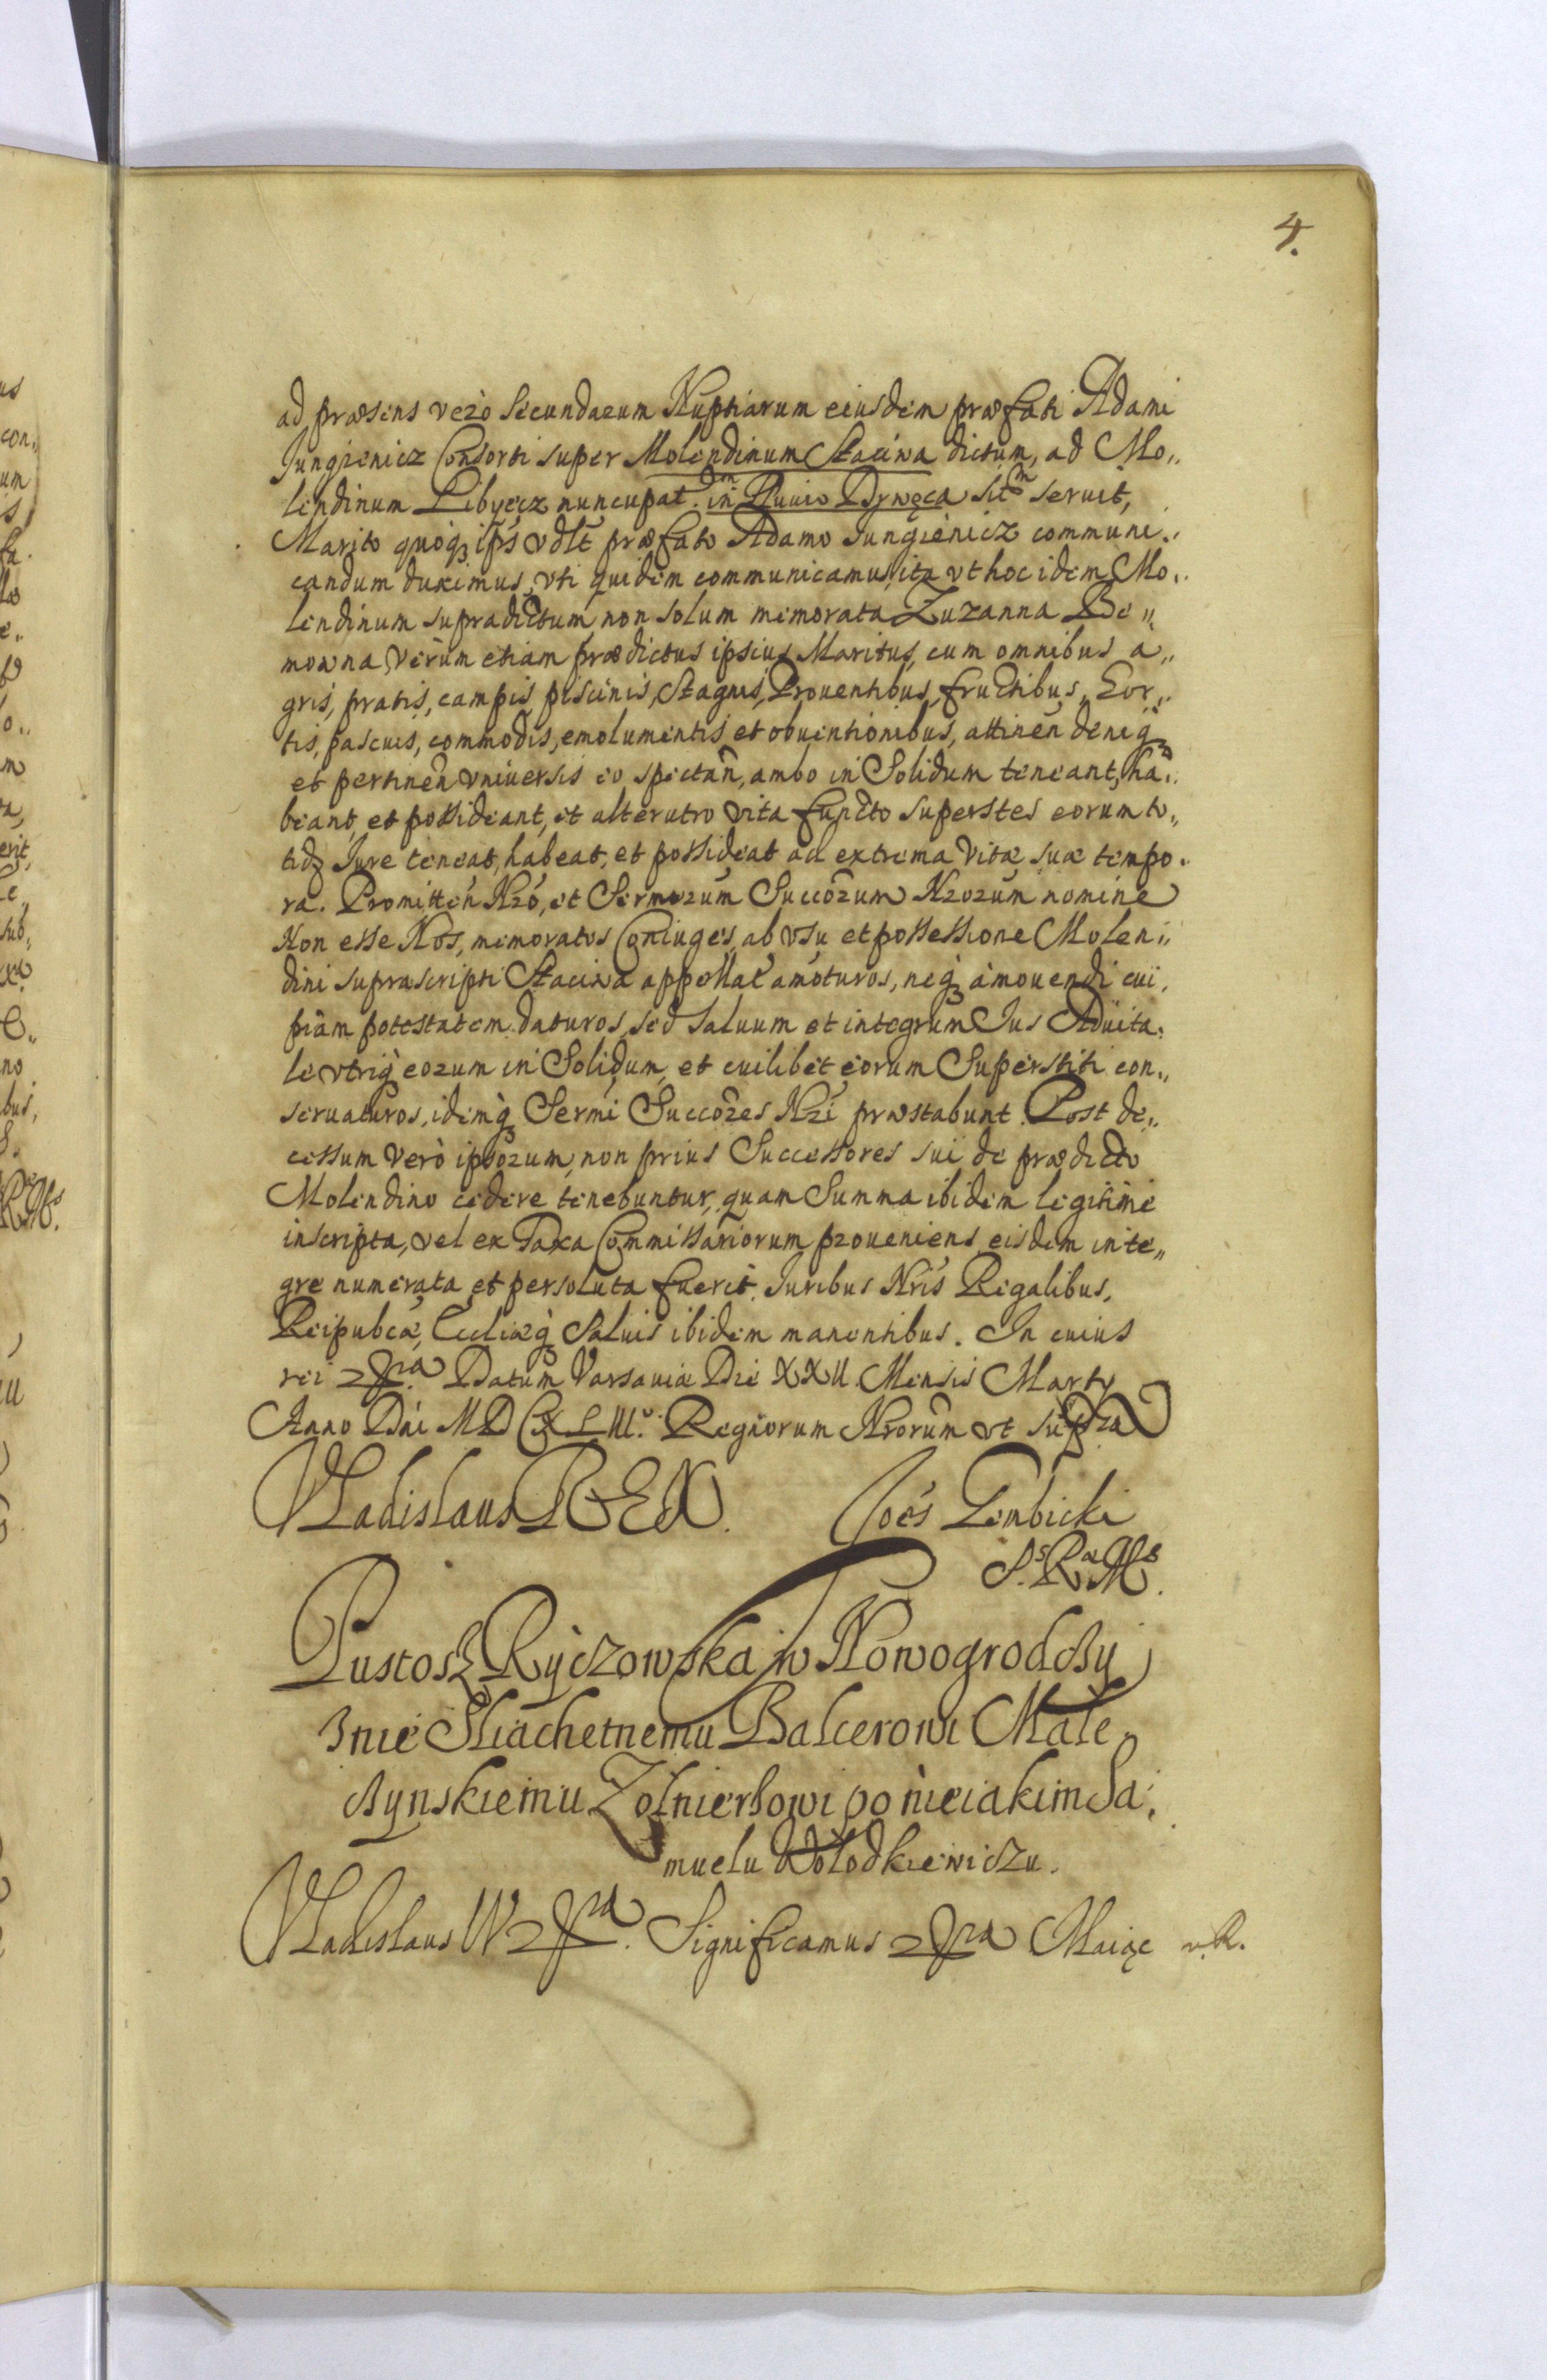 4.
ad præsens verò secundarum Nuptiarum eiusdem præfati Adami
Jungienicz Consorti super Molendinum Staciwa dictum, ad Mo„
lendinum Libyecz nuncupat. in Fluuio Drwęca sitm seruit,
Marito quoqꝫ ips̃ vdlt præfato Adamo Jungienicz communi„
candum duximus, vti quidem communicamus, ita vt hoc idem Mo„
lendinum supradictum non solum memorata Zuzanna Be„
mowna, verùm etiam prædictus ipsius Maritus, cum omnibus a„
gris, pratis, campis, piscinis, Stagnis, Prouentibus, fructibus, Hor„
tis, pascuis, commodis, emolumentis et obuentionibus, attinen̄ deniqꝫ
et pertinen̄ vniuersis eo spectan̄, ambo in Solidum teneant, ha„
beant, et possideant, et alterutro vita functo superstes eorum to„
tidꝫ Jure teneat, habeat, et possideat ad extrema vitæ suæ tempo„
ra. Promitten̄ Nro, et Sermorum Succõrum Nrorum nomine
Non esse Nos, memoratos Coniuges, ab vsu et possessione Molen„
dini suprascripti Staciwa appellat̃ amoturos, neqꝫ amouendi cui„
piam potestatem daturos, sed saluum et integrum Jus Aduita„
le vtriqꝫ eorum in Solidum, et cuilibet eorum Superstiti con„
seruaturos, idemqꝫ Sermi Succõres Nri præstabunt. Post de„
cessum verò ipsorum, non prius Successores sui de prædicto
Molendino cedere tenebuntur, quam Summa ibidem legitime
inscripta, vel ex Taxa Commissariorum proueniens, eisdem inte„
gre numerata et persoluta fuerit. Juribus Nris Regalibus,
Reipubcæ, Ecliæqꝫ Saluis ibidem manentibus. In cuius
rei Datum Varsauiæ Die XXII Mensis Marty
Anno Dni MDCXLIII. Regnorum Nrorum vt supra
Vladislaus REX. Joẽs Gembicki
S. R. M.
Pustosz Ryczowska w Nowogrodczy
znie Sliachetnemu Balcerowi Male„
szynskiemu Zołnierzowi po nieiakim Sa„
muelu Wołodkiewiczu.
Vladislaus IV Significamus Maiąc